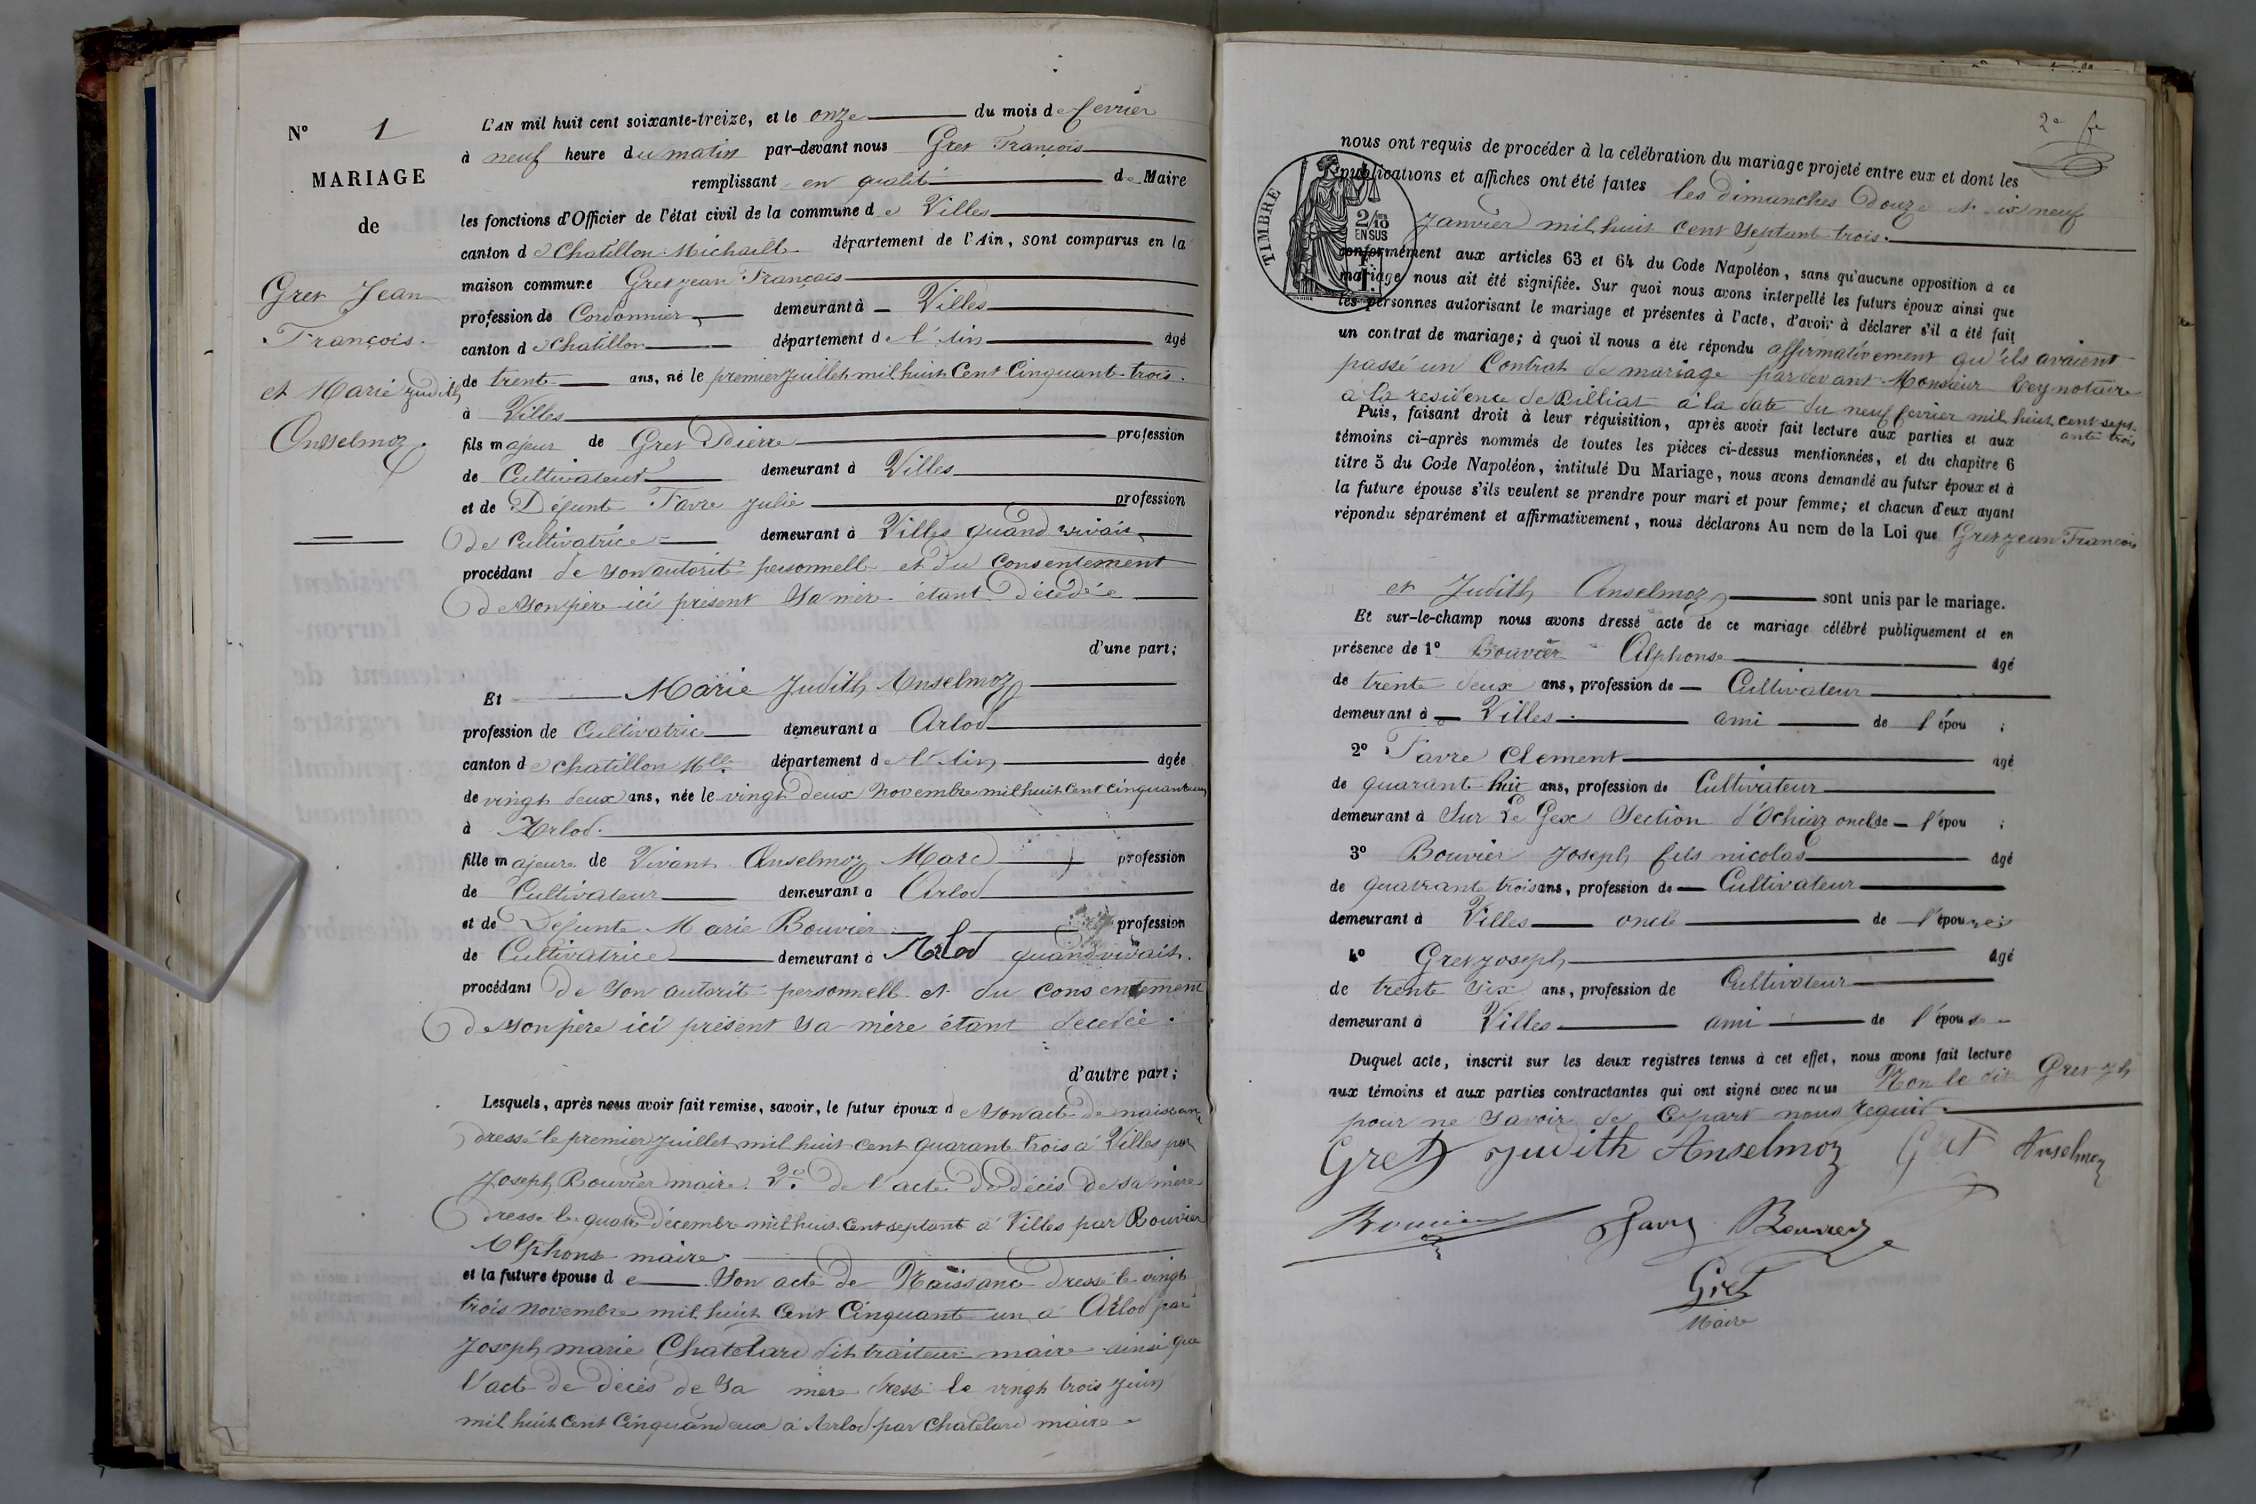 N° 1
MARIAGE
de
Gret Jean
François
et Marie Judith
Anselmoz
L'AN mil huit cent soixante-treize, et le onze du mois de fevrier
à neuf heure du matin par-devant nous Gret François
remplissant en qualité de Maire
les fonctions d'Officier de l'état civil de la commune de Villes
canton de Chatillon Michaill département de l'Ain, sont comparus en la
maison commune Gret jean François
profession de Cordonnier demeurant à Villes
canton de Chatillon département de l'Ain âgé
de trente ans, né le premier juillet mil huit Cent Cinquante trois
à Villes
fils majeur de Gret Pierre profession
de Cultivateur demeurant à Villes
et de Défunte Favre Julie profession
de Cultivatrice demeurant à Villes quand vivait
procédant de son autorité personnelle et du Consentement
de son père ici present Sa mère étant Décédée
d'une part;
Et Marie Judith Anselmoz
profession de Cultivatrice demeurant a Arlod
canton de Chatillon Mlle département de l'Ain âgée
de vingt deux ans, née le vingt deux Novembre mil huit Cent cinquante un
à Arlod
fille majeure de Vivant Anselmoz Marc profession
de Cultivateur demeurant a Arlod
et de Defunte Marie Bouvier profession
de Cultivatrice demeurant à Arlod quand vivait
procédant de son autorité personnelle et du consentement
de son père ici présent sa mère étant décédée
d'autre part;
Lesquels, après nous avoir fait remise, savoir, le futur époux de son acte de naissance
dressé le premier juillet mil huit cent quarante trois à Villes par
Joseph Bouvier maire. 2° de l'acte de décès de sa mère
dressé le quatre décembre mil huit Cent septante à Villes par Bouvier
Alphonse maire
et la future épouse de Son acte de Naissance dressé le vingt
trois novembre mil huit Cent Cinquante un à Arlod par
Joseph marie Chatelard dit traiteur maire ainsi que
l'acte de décès de Sa mère dressé le vingt trois juin
mil huit Cent Cinquandeux à Arlod par Chatelard maire
2e f
nous ont requis de procéder à la célébration du mariage projeté entre eux et dont les
publications et affiches ont été faites les dimanches Douze et dix neuf
Janvier mil huit cent septante trois
TIMBRE
2/10
EN SUS
conformément aux articles 63 et 64 du Code Napoléon, sans qu'aucune opposition à ce
mariage nous ait été signifiée. Sur quoi nous avons interpellé les futurs époux ainsi que
les personnes autorisant le mariage et présentes à l'acte, d'avoir à déclarer s'il a été fait
un contrat de mariage; à quoi il nous a été répondu affirmativement qu'ils avaient
passé un Contrat de mariage pardevant Monsieur notaire
à la residence de Billiat à la date du neuf fevrier mil huit cent sept-
ante trois
Puis, faisant droit à leur réquisition, après avoir fait lecture aux parties et aux
témoins ci-après nommés de toutes les pièces ci-dessus mentionnées, et du chapitre 6
titre 5 du Code Napoléon, intitulé Du Mariage, nous avons demandé au futur époux et à
la future épouse s'ils veulent se prendre pour mari et pour femme; et chacun d'eux ayant
répondu séparément et affirmativement, nous déclarons Au nom de la Loi que Gret jean François
et Judith Anselmoz sont unis par le mariage.
Et sur-le-champ nous avons dressé acte de ce mariage célébré publiquement et en
présence de 1° Bouvier Alphonse âgé
de trente deux ans, profession de Cultivateur
demeurant à Villes ami de l'épou ;
2° Favre Clement âgé
de quarante huit ans, profession de Cultivateur
demeurant à Sur Le Gex Section d'Ochiaz oncle de l'épou ;
3° Bouvier Joseph fils nicolas âgé
de quatrante trois ans, profession de Cultivateur
demeurant à Villes oncle de l'épouse
4° Gret joseph âgé
de trente six ans, profession de Cultivateur
demeurant à Villes ami de l'épouse
Duquel acte, inscrit sur les deux registres tenus à cet effet, nous avons fait lecture
aux témoins et aux parties contractantes qui ont signé avec nous Non le dit Gret jh
pour ne savoir de Cepart nous requit
Gret Judith Anselmoz Gret Anselmoz
Bouvier Favre Bouvier
Gret
Maire